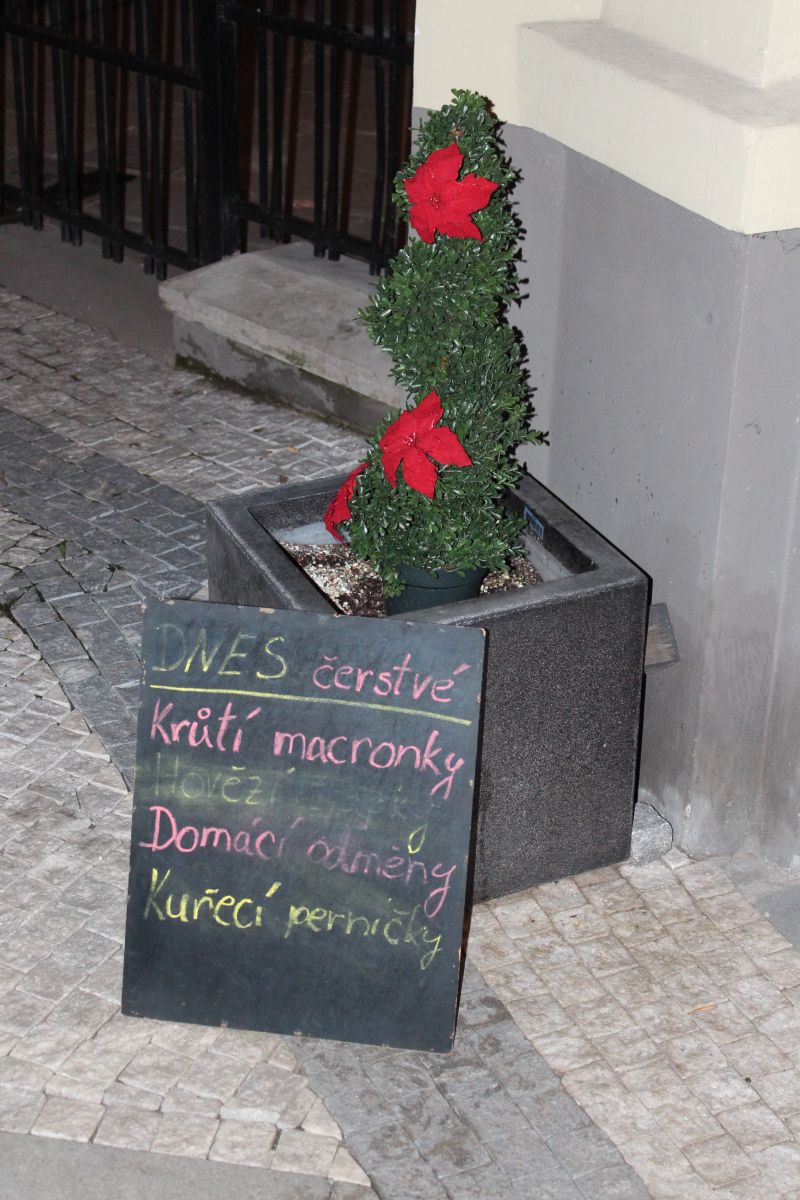 DNES čerstvé
Krůtí macronky
Hovězí
Domácí odměny
Kuřecí perníčky